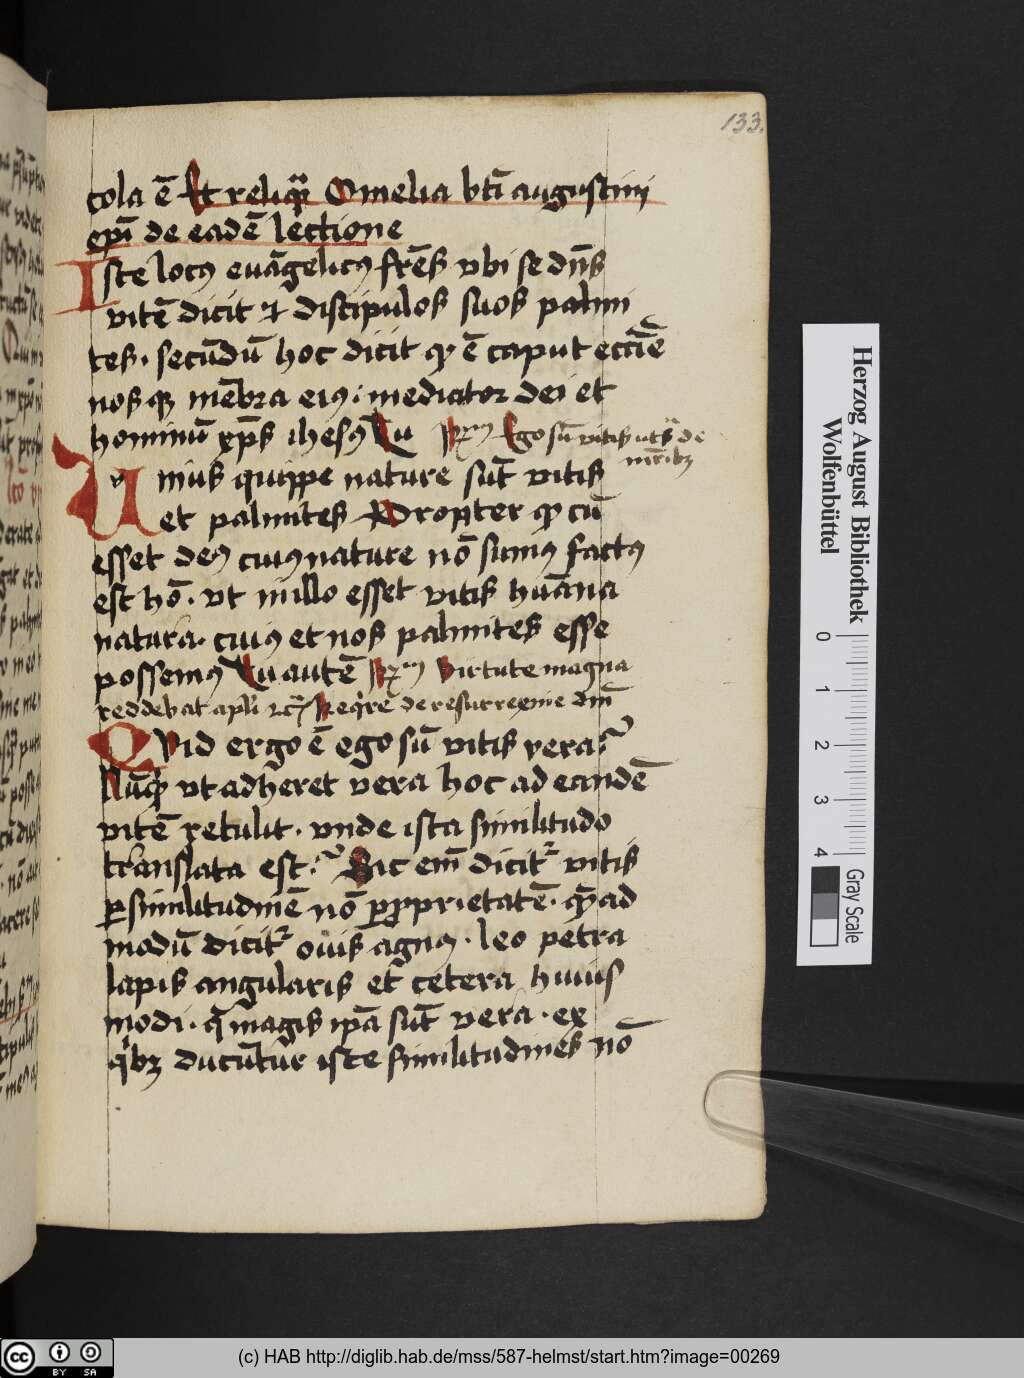 133.
cola ē Et reliq̄ Omelia bt̄i augustini
ep̄i de eadē lectione
Iste locꝰ euāgelicꝰ fr̄es vbi se dn̄s
vitē dicit ⁊ discipulos suos palmi
tes · secūdū hoc dicit ꝙ ē caput ecc̄ie
nos qꝫ mēbra eiꝰ · mediator dei et
hominū xp̄s ihesꝰ Tu Ego sū vitis de
mr̄ibꝫ
Vnius quippe nature sūt vitis
et palmites Propter ꝙ cū
esset deꝰ cuiꝰ nature nō sumꝰ factꝰ
est hō · vt in illo esset vitis huāna
natura · cuiꝰ et nos palmites esse
possemꝰ Tu autē Virtute magna
reddebat apl̄i de resurrex̄ine dn̄i
Qvid ergo ē ego sū vitis vera
Nūqͥd vt adheret vera hoc ad eandē
vitē retulit · vnde ista similitudo
translata est Sic em̄ dicitr vitis
ꝑ similitudinē nō ꝑ ꝓprietatē · qͤad
modū dicitr ouis agnꝰ · leo petra
lapis angularis et cetera huius
modi · q̄ magis ip̄a sūt vera · ex
qͥbꝫ ducūtur iste similitudines nō
Herzog August Bibliothek
Wolfenbüttel
0 1 2 3 4
Gray Scale
cc BY SA
(c) HAB http://diglib.hab.de/mss/587-helmst/start.htm?image=00269